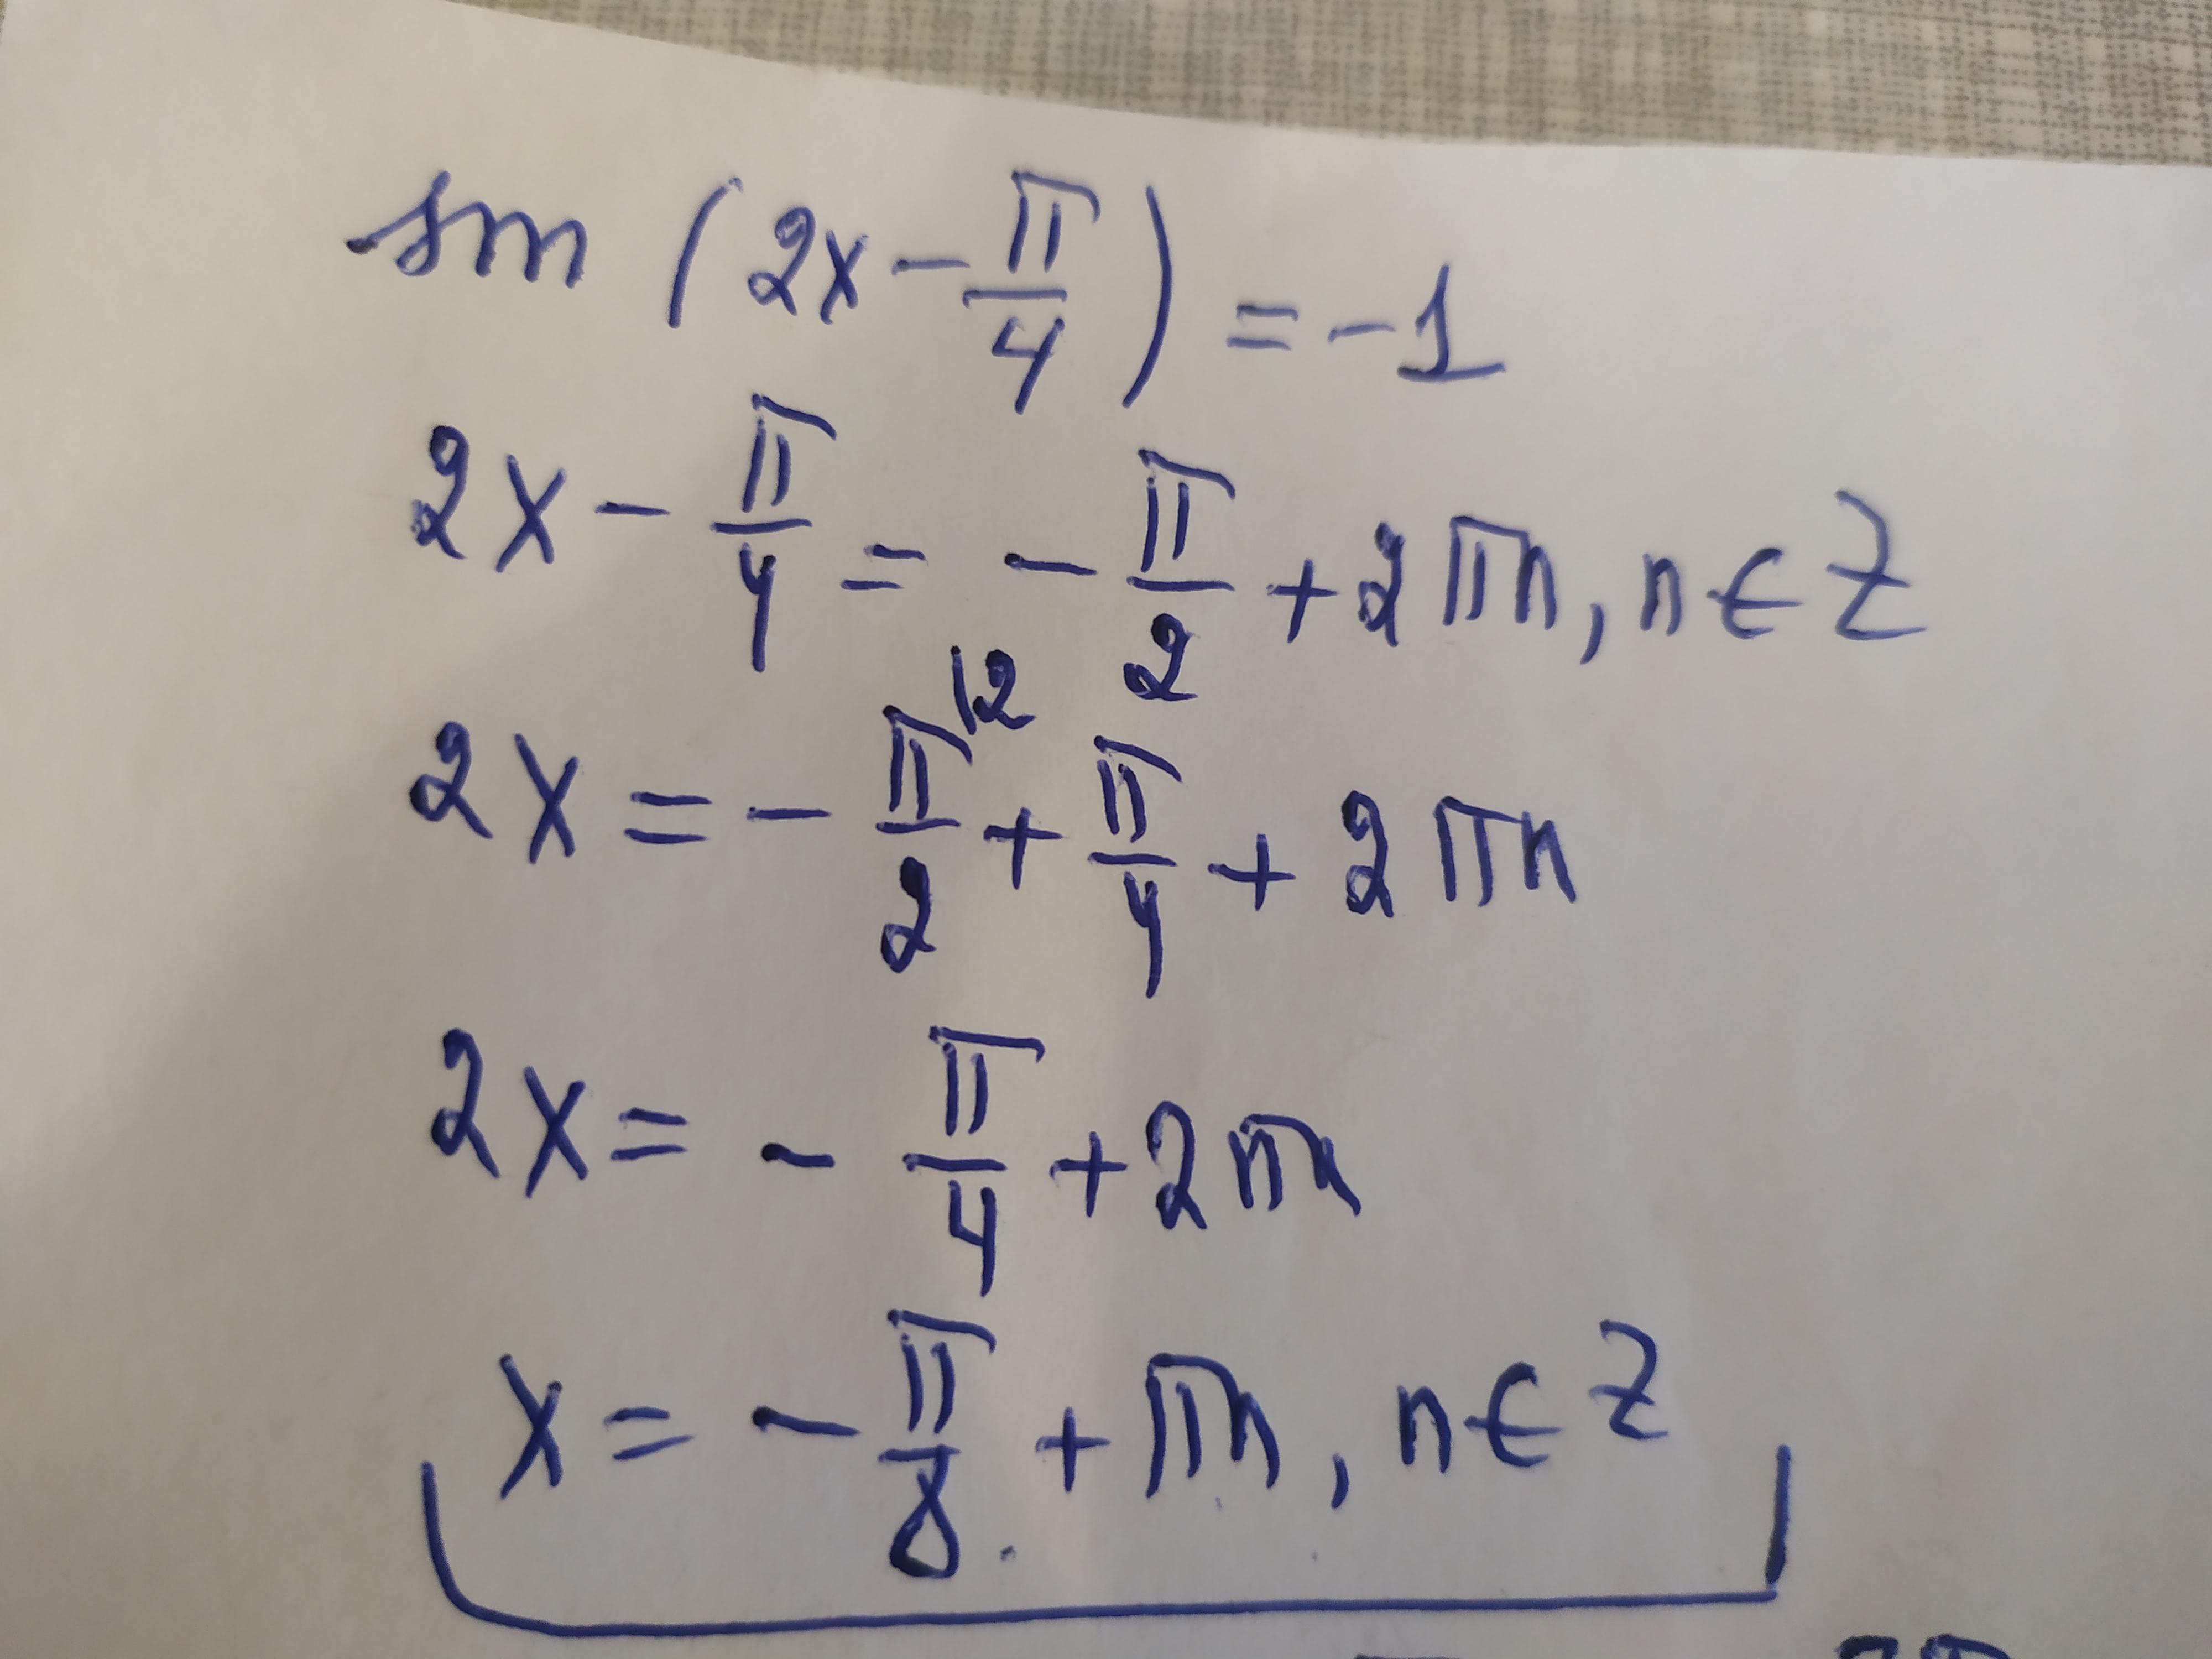 sin (2x - π/4) = -1
2x - π/4 = - π/2 + 2πn, n ∈ Z
2x = - π/2 \2 + π/4 + 2πn
2x = - π/4 + 2πn
x = - π/8 + πn, n ∈ Z